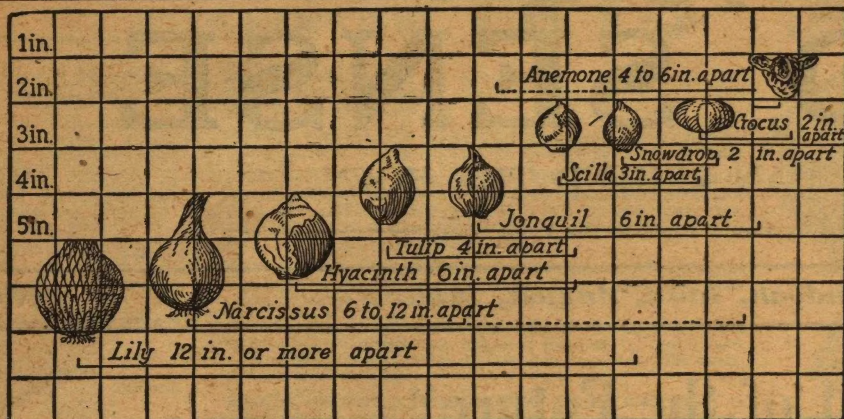 1in.
2in.
Anemone 4 to 6in. apart
3in.
Crocus 2in. apart
Snowdrop 2 in. apart
4in.
Scilla 3in. apart
5in.
Jonquil 6in apart
Tulip 4 in. apart
Hyacinth 6in. apart
Narcissus 6 to 12 in. apart
Lily 12 in. or more apart